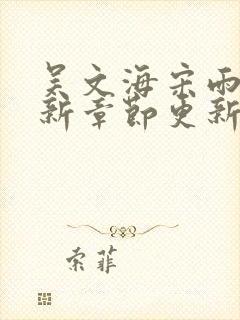 吴文海宋雨
新章节更新
索菲